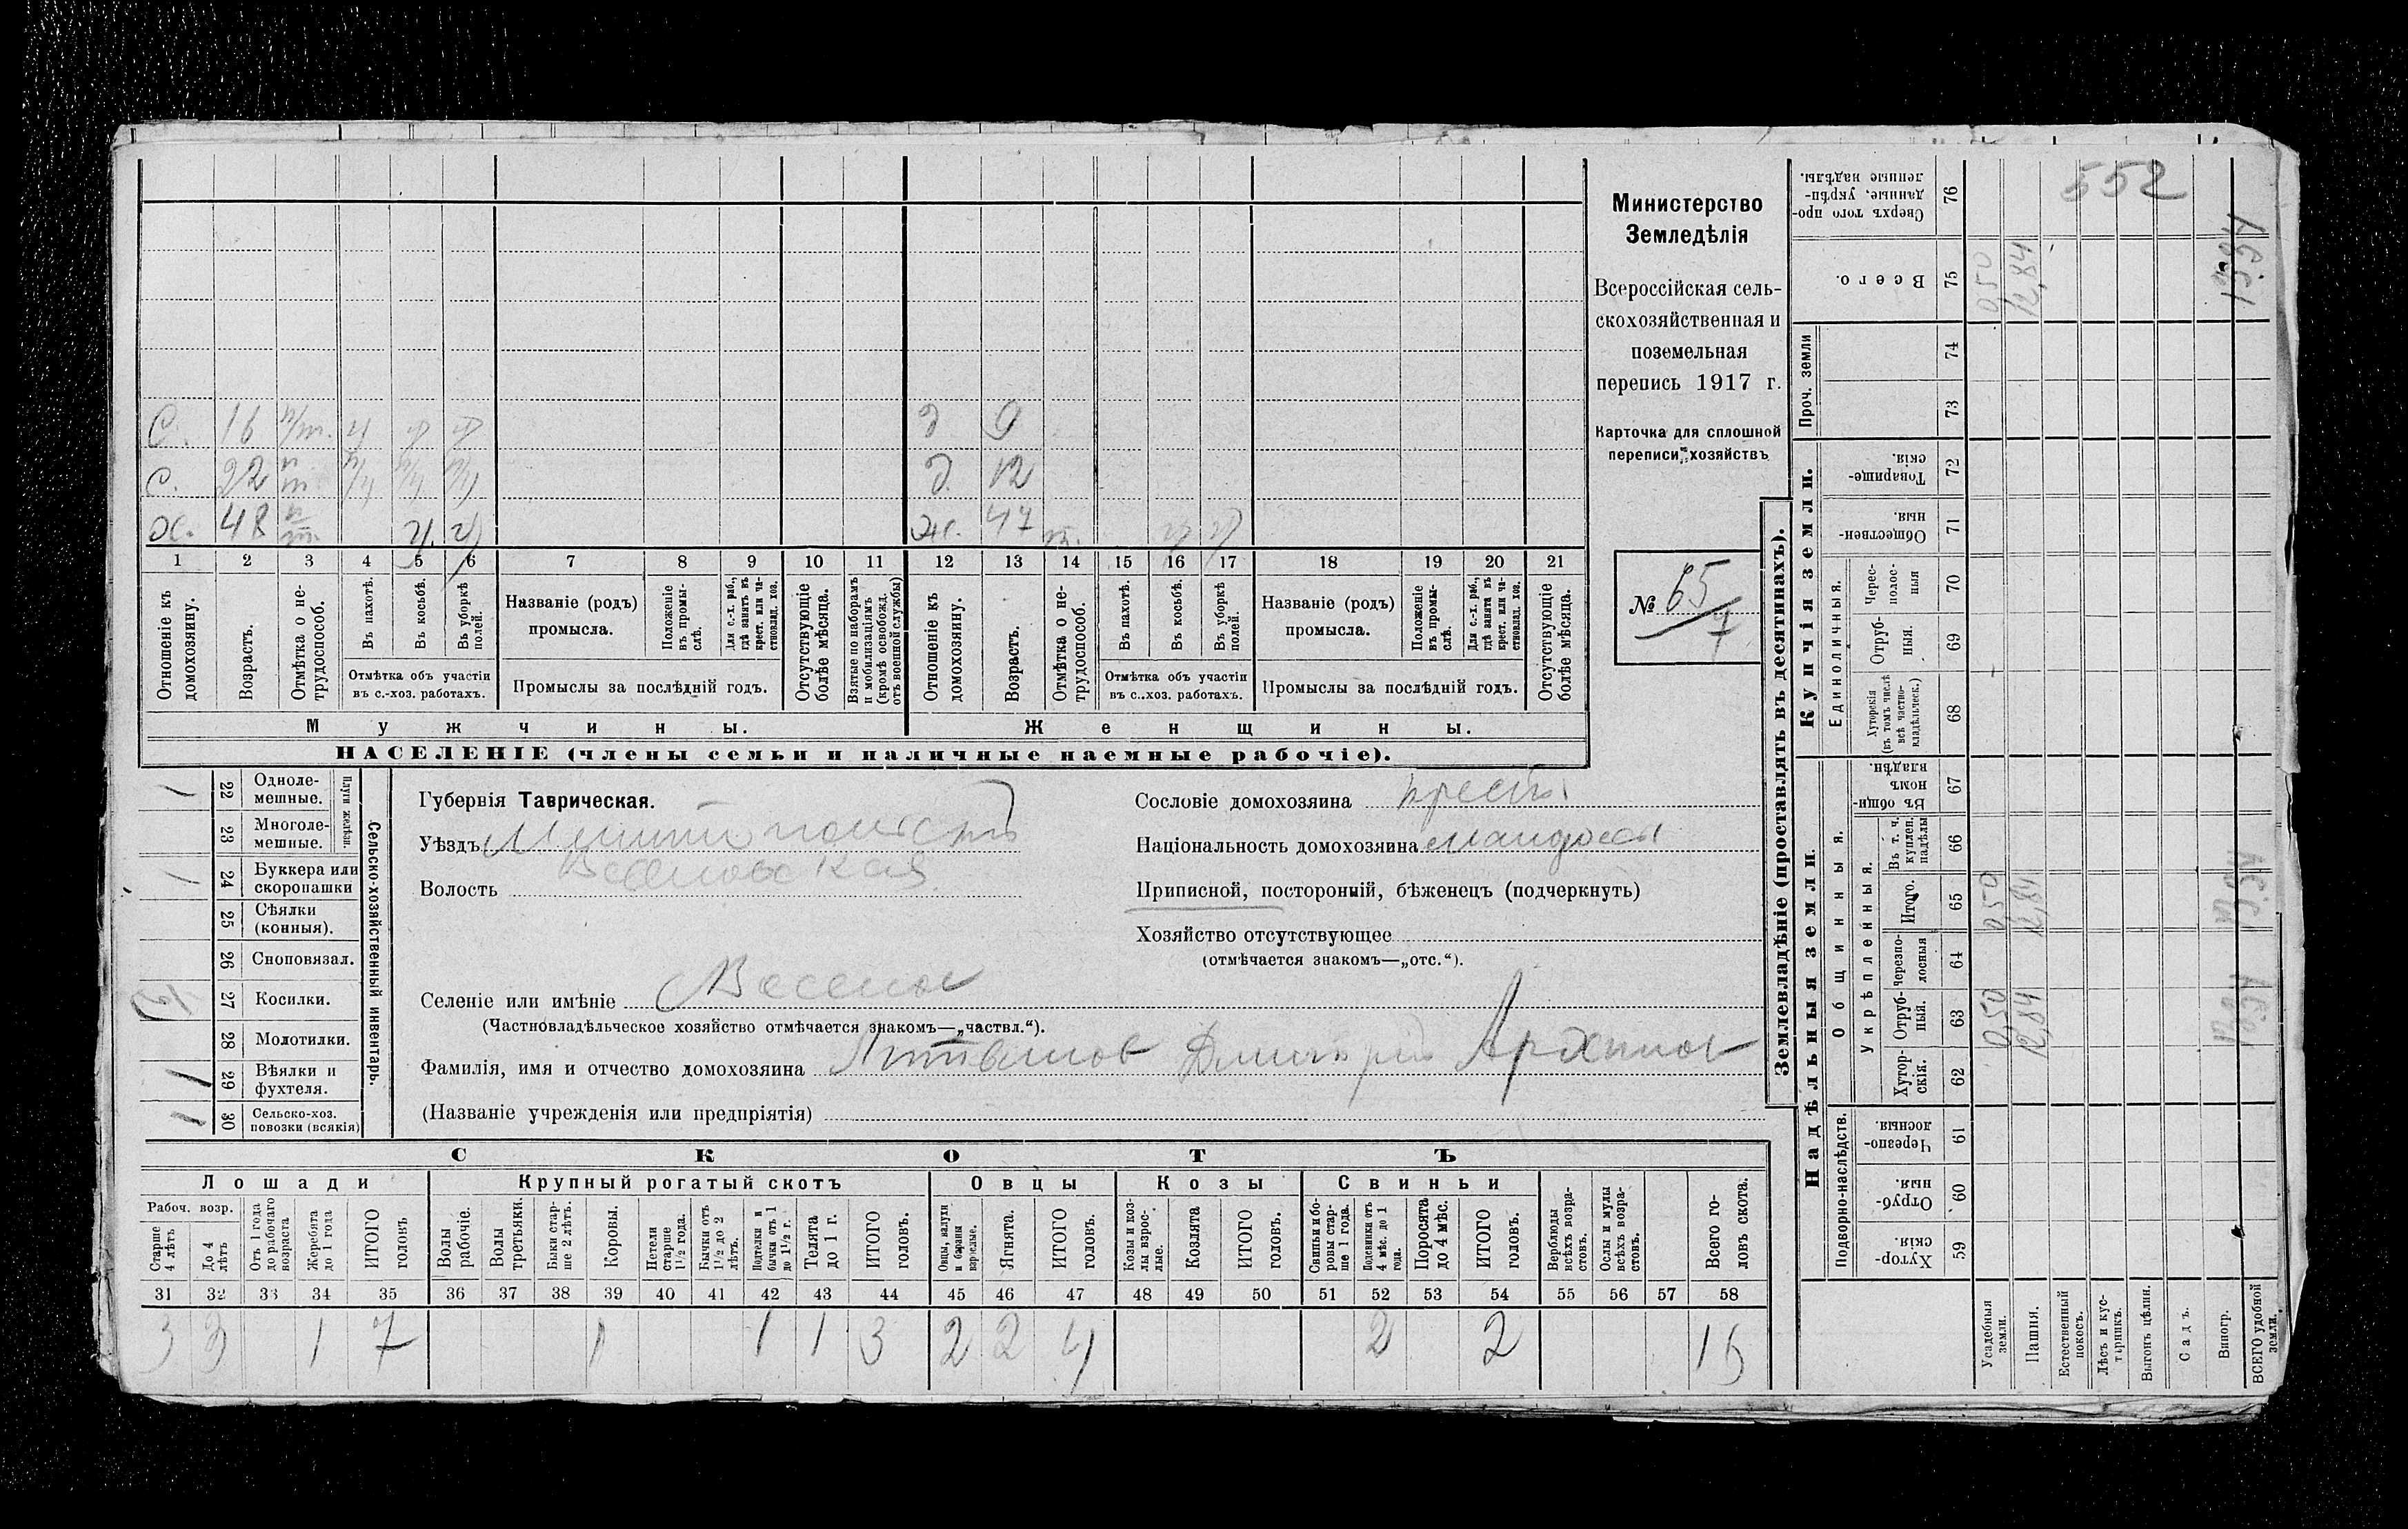 552
Министерство
Земледѣлія
Всероссійская сель-
скохозяйственная и
поземельная
перепись 1917 г.
Карточка для сплошной
переписи хозяйствъ
№ 65/7
С. 16 д 9
С. 22 д. 12
Х. 48 Ж. 47
1 2 3 4 5 6 7 8 9 10 11 12 13 14 15 16 17 18 19 20 21
Отношеніе къ домохозяину.
Возрастъ.
Отмѣтка о не-трудоспособ.
Въ пахотѣ.
Въ косьбѣ.
Въ уборкѣ полей.
Отмѣтка объ участіи
въ с.-хоз. работахъ.
Названіе (родъ)
промысла.
Положеніе въ промы-слѣ.
Для с.-х. раб., гдѣ занятъ въ крест. или ча-стновлад. хоз.
Промыслы за послѣдній годъ.
Отсутствующіе болѣе мѣсяца.
Взятые по наборамъ и мобилизаціямъ (кромѣ освобожд. отъ военной службы)
Отношеніе къ домохозяину.
Возрастъ.
Отмѣтка о не-трудоспособ.
Въ пахотѣ.
Въ косьбѣ.
Въ уборкѣ полей.
Отмѣтка объ участіи
въ с..хоз. работахъ.
Названіе (родъ)
промысла.
Положеніе въ промы-слѣ.
Для с.-х. раб., гдѣ занята въ крест. или ча-стновлад. хоз.
Промыслы за послѣдній годъ.
Отсутствующіе болѣе мѣсяца.
Мужчины.
Женщины.
НАСЕЛЕНІЕ (члены семьи и наличные наемные рабочіе).
Сельско-хозяйственный инвентарь.
Плуги желѣзн.
22 Одноле-мешные.
23 Многоле-мешные.
24 Буккера или скоропашки
25 Сѣялки (конныя).
26 Сноповязал.
27 Косилки.
28 Молотилки.
29 Вѣялки и фухтеля.
30 Сельско-хоз. повозки (всякія)
Губернія Таврическая.
Уѣздъ
Волость Веселовская
Селеніе или имѣніе Веселое
(Частновладѣльческое хозяйство отмѣчается знакомъ—„частвл.“).
Фамилія, имя и отчество домохозяина Дмитрій Архипов
(Названіе учрежденія или предпріятія)
Сословіе домохозяина крест.
Національность домохозяина малоросс
Приписной, посторонній, бѣженецъ (подчеркнуть)
Хозяйство отсутствующее
(отмѣчается знакомъ—„отс.“).
СКОТЪ
Лошади
Крупный рогатый скотъ
Овцы
Козы
Свиньи
Рабоч. возр.
Старше 4 лѣтъ
До 4 лѣтъ
Отъ 1 года до рабочаго возраста
Жеребята до 1 года
ИТОГО головъ
Волы рабочіе.
Волы третьяки.
Быки стар-ше 2 лѣтъ.
Коровы.
Нетели старше 1½ года.
Бычки отъ 1½ до 2 лѣтъ.
Подтелки и бычки отъ 1 до 1½ г.
Телята до 1 г.
ИТОГО головъ.
Овцы, валухи и бараны взрослые.
Ягнята.
ИТОГО головъ.
Козы и коз-лы взрос-лые.
Козлята
ИТОГО головъ.
Свиньи и бо-ровы стар-ше 1 года.
Подсвинки отъ 4 мѣс. до 1 года.
Поросята до 4 мѣс.
ИТОГО головъ.
Верблюды всѣхъ возра-стовъ.
Ослы и мулы всѣхъ возра-стовъ.
Всего го-ловъ скота.
31 32 33 34 35 36 37 38 39 40 41 42 43 44 45 46 47 48 49 50 51 52 53 54 55 56 57 58
3 3 1 7 1 1 1 3 2 2 4 2 2 16
Землевладѣніе (проставлять въ десятинахъ).
Купчія земли.
Надѣльныя земли.
Проч. земли
Единоличныя.
Общинныя.
Укрѣпленныя.
Подворно-наслѣдств.
76 Сверхъ того про-данные, укрѣп-ленные надѣлы.
75 Всего. 0,50 12,84
74
73
72 Товарище-скія.
71 Обществен-ныя.
70 Черес-полос-ныя
69 Отруб-ныя.
68 Хуторскія (въ томъ числѣ всѣ частно-владѣльческ.)
67 Въ общи-номъ владѣн.
66 Въ т. ч. куплен. надѣлы
65 Итого. 0,50 12,84
64 Черезпо-лосныя
63 Отруб-ный. 0,50 12,84
62 Хутор-скія.
61 Черезпо-лосныя.
60 Отруб-ныя.
59 Хутор-скія.
Усадебныя земли.
Пашня.
Естественный покосъ.
Лѣсъ и кус-тарникъ.
Выгонъ цѣлин.
Садъ.
Виногр.
ВСЕГО удобной земли.